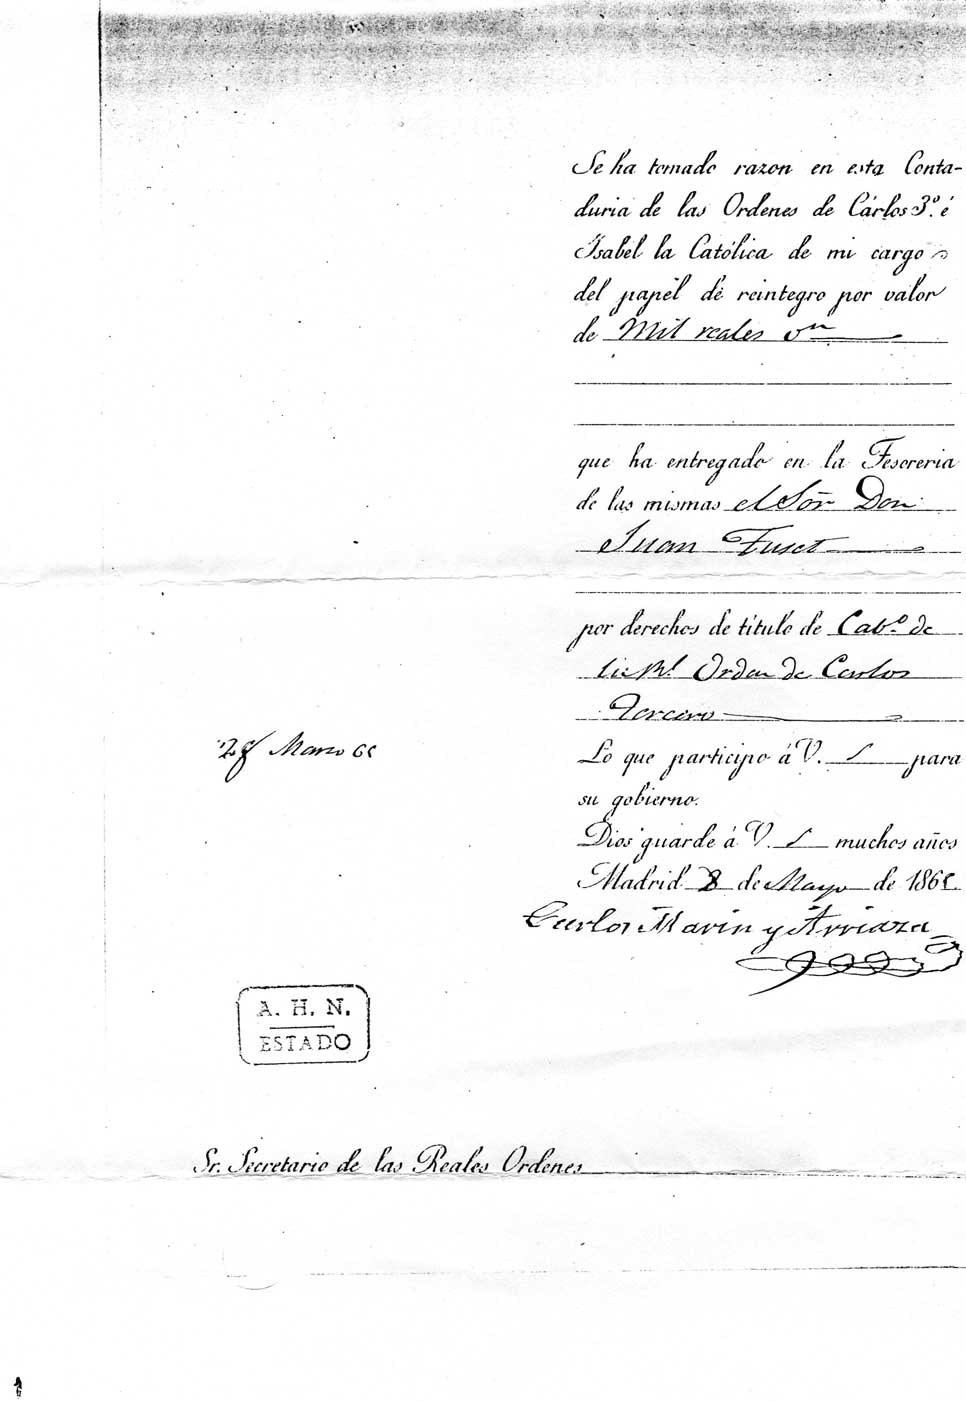 Se ha tomado razon en esta Conta-
duria de las Ordenes de Cárlos 3.º é
Isabel la Católica de mi cargo
del papel de reintegro por valor
de Mil reales vn
que ha entregado en la Tesoreria
de las mismas el Sõr Don
Juan Fuset
por derechos de título de Cabº. de
la Rl. Orden de Carlos
Tercero
Lo que participo á V. S para
su gobierno.
Dios guarde á V. S muchos años
Madrid 8 de Mayo de 186
Carlos Marin y Arriaza
Marzo
A. H. N.
ESTADO
Sr. Secretario de las Reales Ordenes